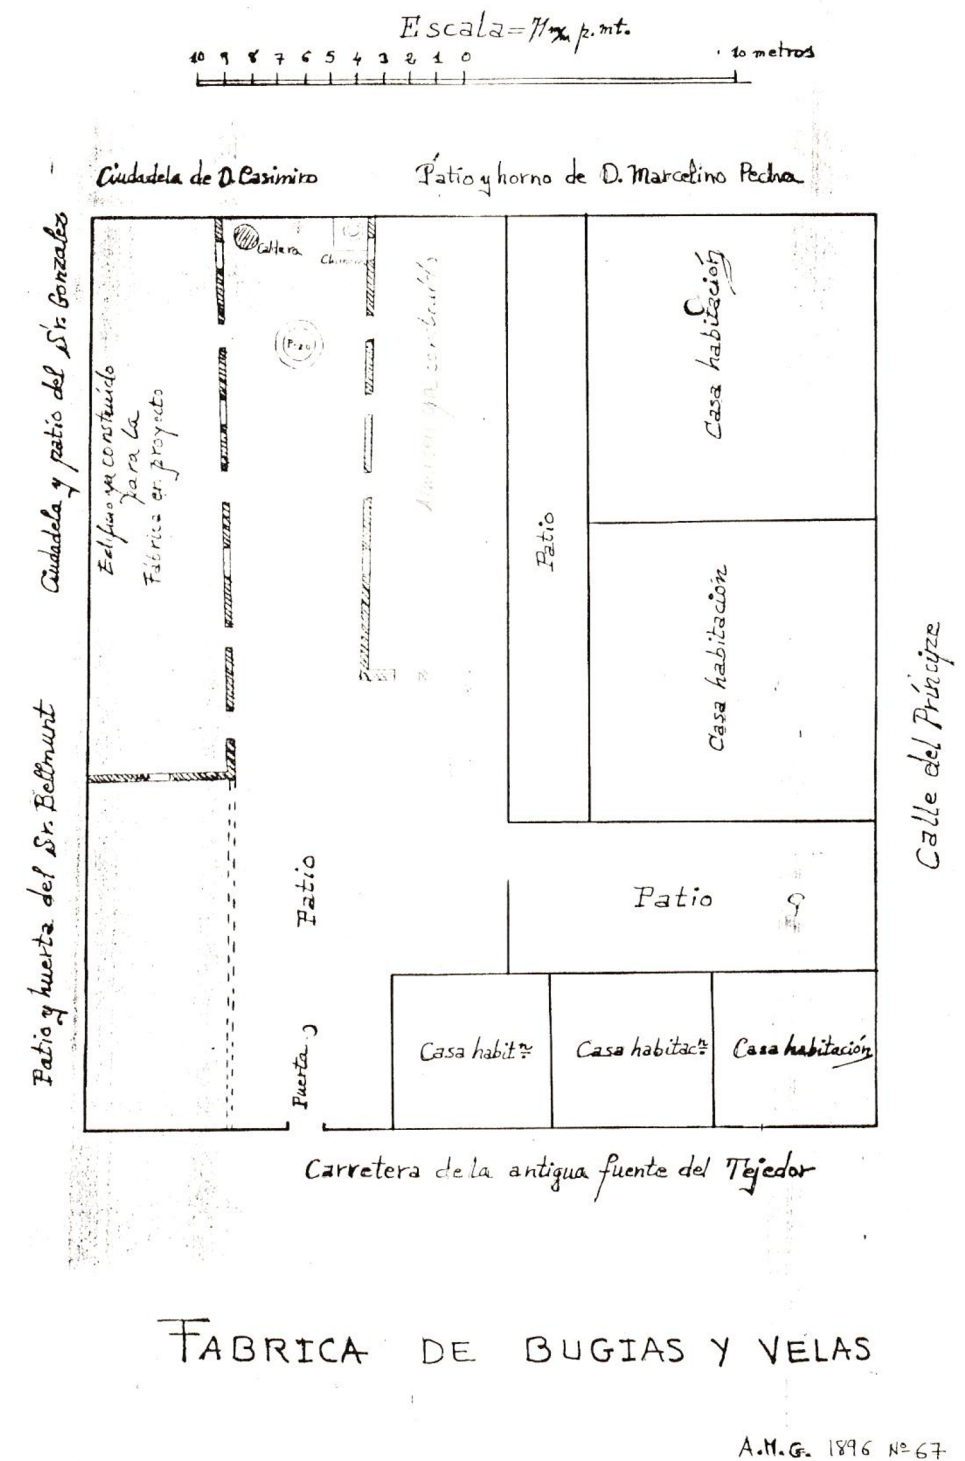 Escala = 71 m/m p. mt.
10 9 8 7 6 5 4 3 2 1 0 10 metros
Ciudadela de D. Casimiro
Patio y horno de D. Marcelino Pedra
Ciudadela y patio del Sr. Gonzales
Patio y huerta del Sr. Bellmunt
Caldera
Pozo
Edificio ya construido
para la
Fábrica en proyecto
ya construido
Patio
Casa habitación
Casa habitación
Calle del Príncipe
Patio
Patio
Puerta
Casa habitn
Casa habitacn
Casa habitación
Carretera de la antigua fuente del Tejedor
FABRICA DE BUGIAS Y VELAS
A.M.G. 1896 Nº 67